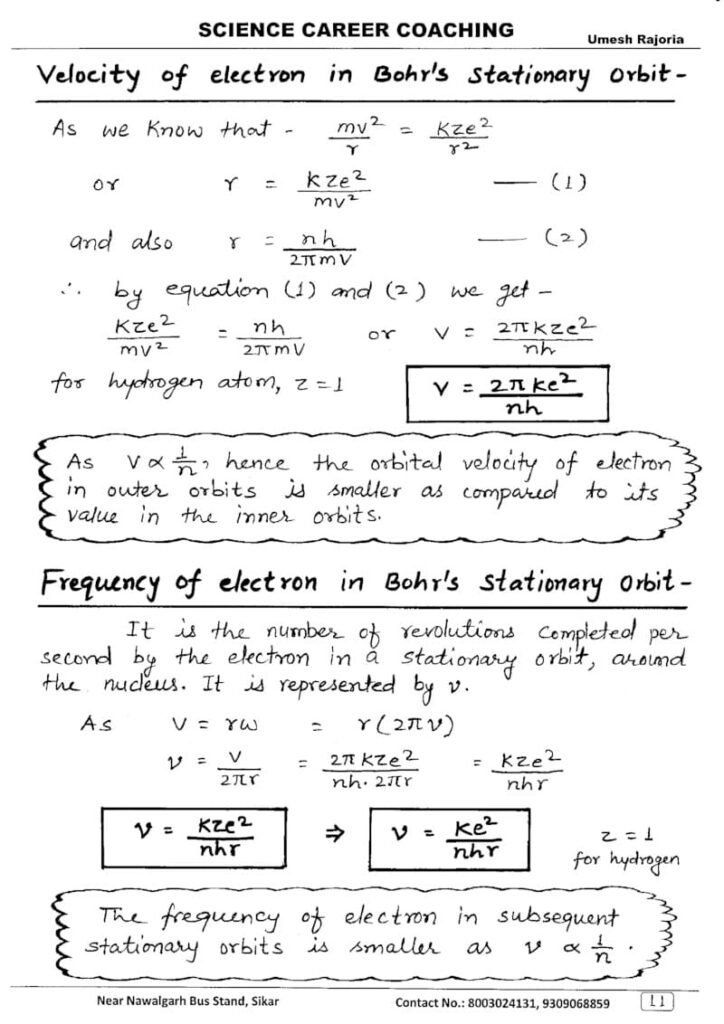 SCIENCE CAREER COACHING
Umesh Rajoria
Velocity of electron in Bohr's Stationary Orbit -
As we know that - mv²/r = KZe²/r²
or r = KZe²/mv² — (1)
and also r = nh/2πmV — (2)
∴ by equation (1) and (2) we get -
KZe²/mv² = nh/2πmV or V = 2πKZe²/nh
for hydrogen atom, z = 1 V = 2πke²/nh
As V ∝ 1/n, hence the orbital velocity of electron
in outer orbits is smaller as compared to its
value in the inner orbits.
Frequency of electron in Bohr's Stationary Orbit -
It is the number of revolutions completed per
second by the electron in a stationary orbit, around
the nucleus. It is represented by ν.
As V = rω = r(2πν)
ν = V/2πr = 2πKZe²/nh. 2πr = KZe²/nhr
ν = KZe²/nhr ⇒ ν = Ke²/nhr z = 1
for hydrogen
The frequency of electron in subsequent
stationary orbits is smaller as ν ∝ 1/n.
Near Nawalgarh Bus Stand, Sikar Contact No.: 8003024131, 9309068859 11